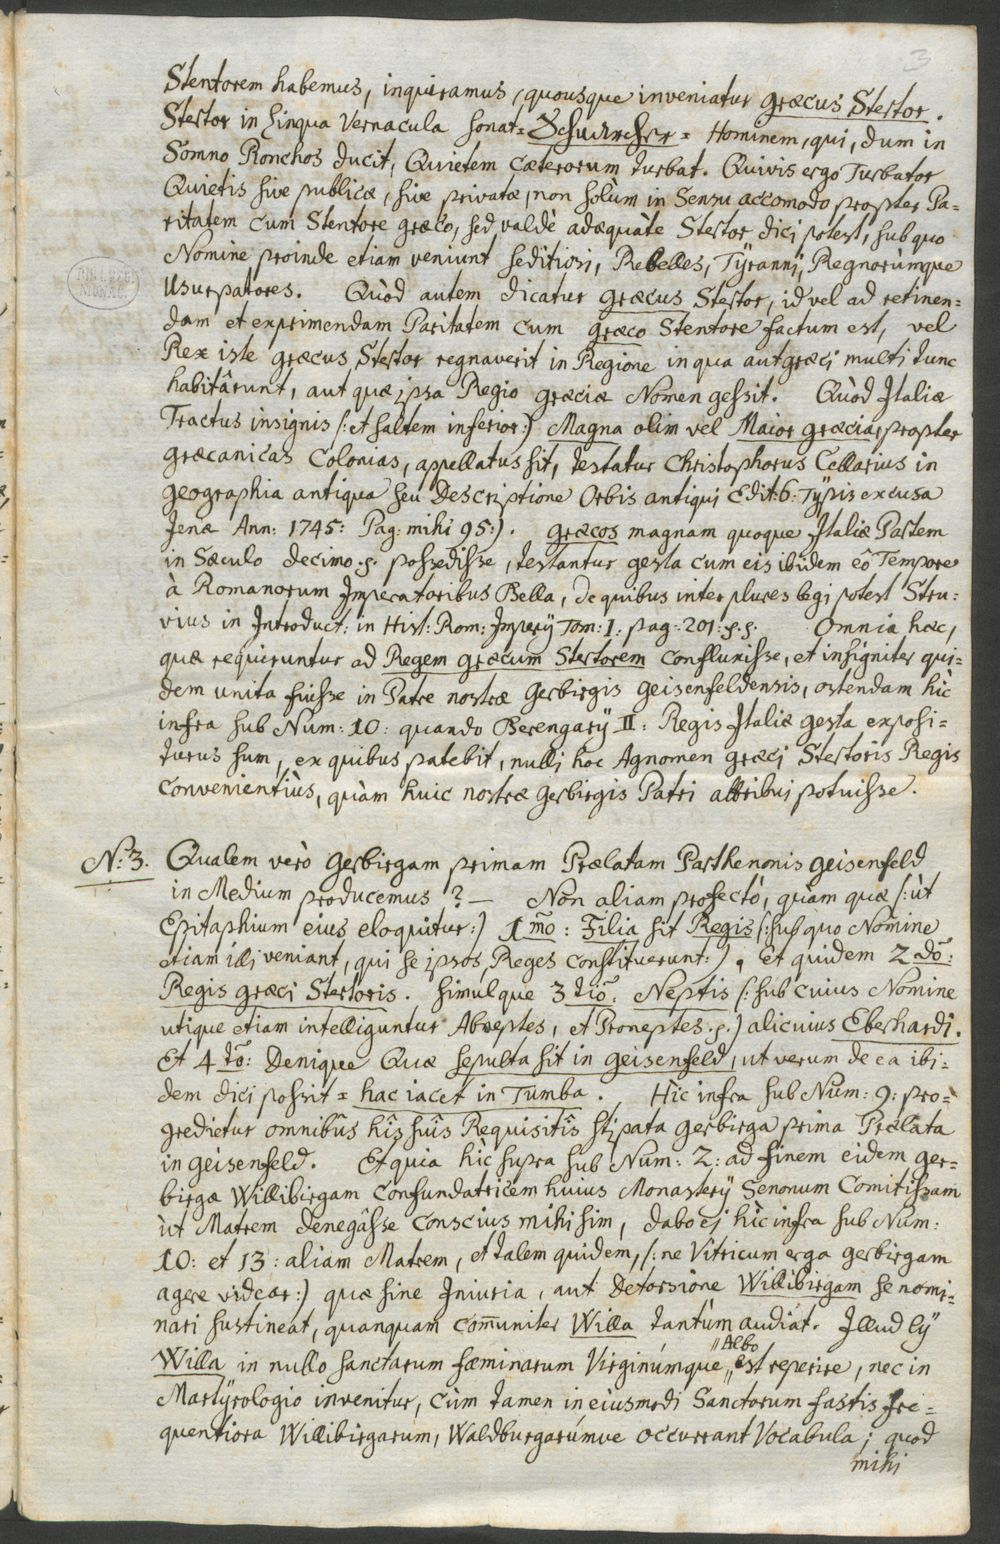 3
Stentorem habemus, inquiramus, quousque inveniatur græcus Stertor.
Stertor in Lingua Vernacula sonat = Schnarcher = Hominem, qui, dum in
Somno Ronchos ducit, Quietem cæterorum turbat. Quivis ergo Turbator
Quietis sive publicæ, sive privatæ, non solùm in Sensu accomodo propter Pa=
ritatem cum Stentore græco, sed valdè adæquàte Stertor dici potest, sub quo
Nomine proinde etiam veniunt seditiosi, Rebelles, Tÿranni, Regnorùmque
Usurpatores. Quòd autem dicatur græcus Stertor, id vel ad retinen=
dam et exprimendam Paritatem cum græco Stentore factum est, vel
Rex iste græcus Stertor regnaverit in Regione in qua aut græci multi tunc
habitârunt, aut quæ ipsa Regio græciæ Nomen gessit. Quòd Italiæ
Tractus insignis /: et saltem inferior :/ Magna olim vel Maior græcia, propter
græcanicas Colonias, appellatus sit, testatur Christophorus Cellarius in
geographia antiqua seu Descriptione Orbis antiqui Edit: 6: Tÿpis excusa
Jenæ Ann: 1745: Pag: mihi 95:). græcos magnam quoque Italiæ Partem
in Sæculo decimo .s. possedisse, testantur gesta cum eis ibidem eô Tempore
à Romanorum Imperatoribus Bella, de quibus inter plures legi potest Stru:
vius in Introduct: in Hist: Rom: Imperÿ Tom: I: pag: 201: s.s. Omnia hæc,
quæ requiruntur ad Regem græcum Stertorem confluxisse, et insigniter qui=
dem unita fuisse in Patre nostræ Gerbirgis geisenfeldensis, ostendam hìc
infra sub Num: 10: quando Berengarÿ II: Regis Italiæ gesta exposi=
turus sum, ex quibus patebit, nulli hoc Agnomen græci Stertoris Regis
convenientiùs, quàm huic nostræ gerbirgis Patri attribui potuisse.
N: 3. Qualem verò gerbirgam primam Prælatam Parthenonis geisenfeld
in Medium producemus? — Non aliam profectò, quàm quæ /: ùt
Epitaphium eius eloquitur :/ 1mô: Filia sit Regis /: sub quo Nomine
etiam illi veniant, qui se ipsos Reges constituerunt :/. et quidem 2dô:
Regis græci Stertoris. simulque 3tiô: Neptis /: sub cuius Nomine
utique etiam intelliguntur Abneptes, et Proneptes .s.) alicuius Eberhardi.
Et 4tô: Denique Quæ sepulta sit in geisenfeld, ut verum de ea ibi=
dem dici possit = hac iacet in Tumba. Hìc infra sub Num: 9: pro=
gredietur omnibûs hîs suîs Requisitîs stipata gerbirga prima Prælata
in geisenfeld. Et quia hìc supra sub Num: 2: ad finem eidem ger=
birgæ Willibirgam Confundatricem huius Monasterÿ Senonum Comitissam
ùt Matrem denegâsse conscius mihi sim, dabo ei hìc infra sub Num:
10: et 13: aliam Matrem, et talem quidem, /: ne Vitricum erga gerbirgam
agere videar :/ quæ sine Iniuria, aut Detorsione Willibirgam se nomi=
nari sustineat, quanquam com̄uniter Willa tantùm audiat. Illud lÿ
Willa in nullo sanctarum fæminarum Virginùmque "Albo" est reperire, nec in
Martÿrologio invenitur, cùm tamen in eiusmodi Sanctorum fastis fre=
quentiora Willibirgarum, Waldburgarùmve occurrant Vocabula; quod
mihi